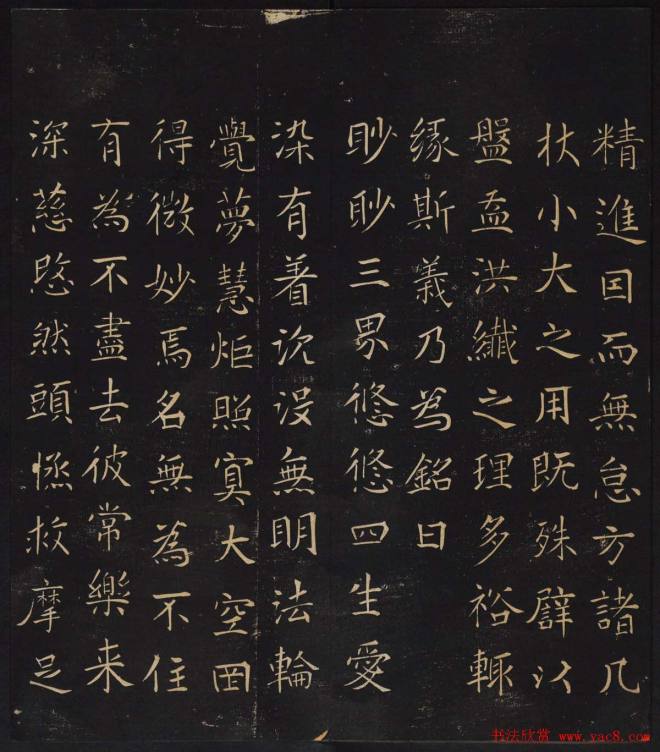 精進因而無怠方諸几
杖小大之用既殊譬以
盤盂洪纖之理多裕輙
緣斯義乃為銘曰
眇眇三界悠悠四生愛
染有着沉没無明法輪
覺夢慧炬照冥大空罔
得微妙焉名無為不住
有為不盡去彼常樂来
深慈愍然頭拯救摩足
书法欣赏 www.yac8.com